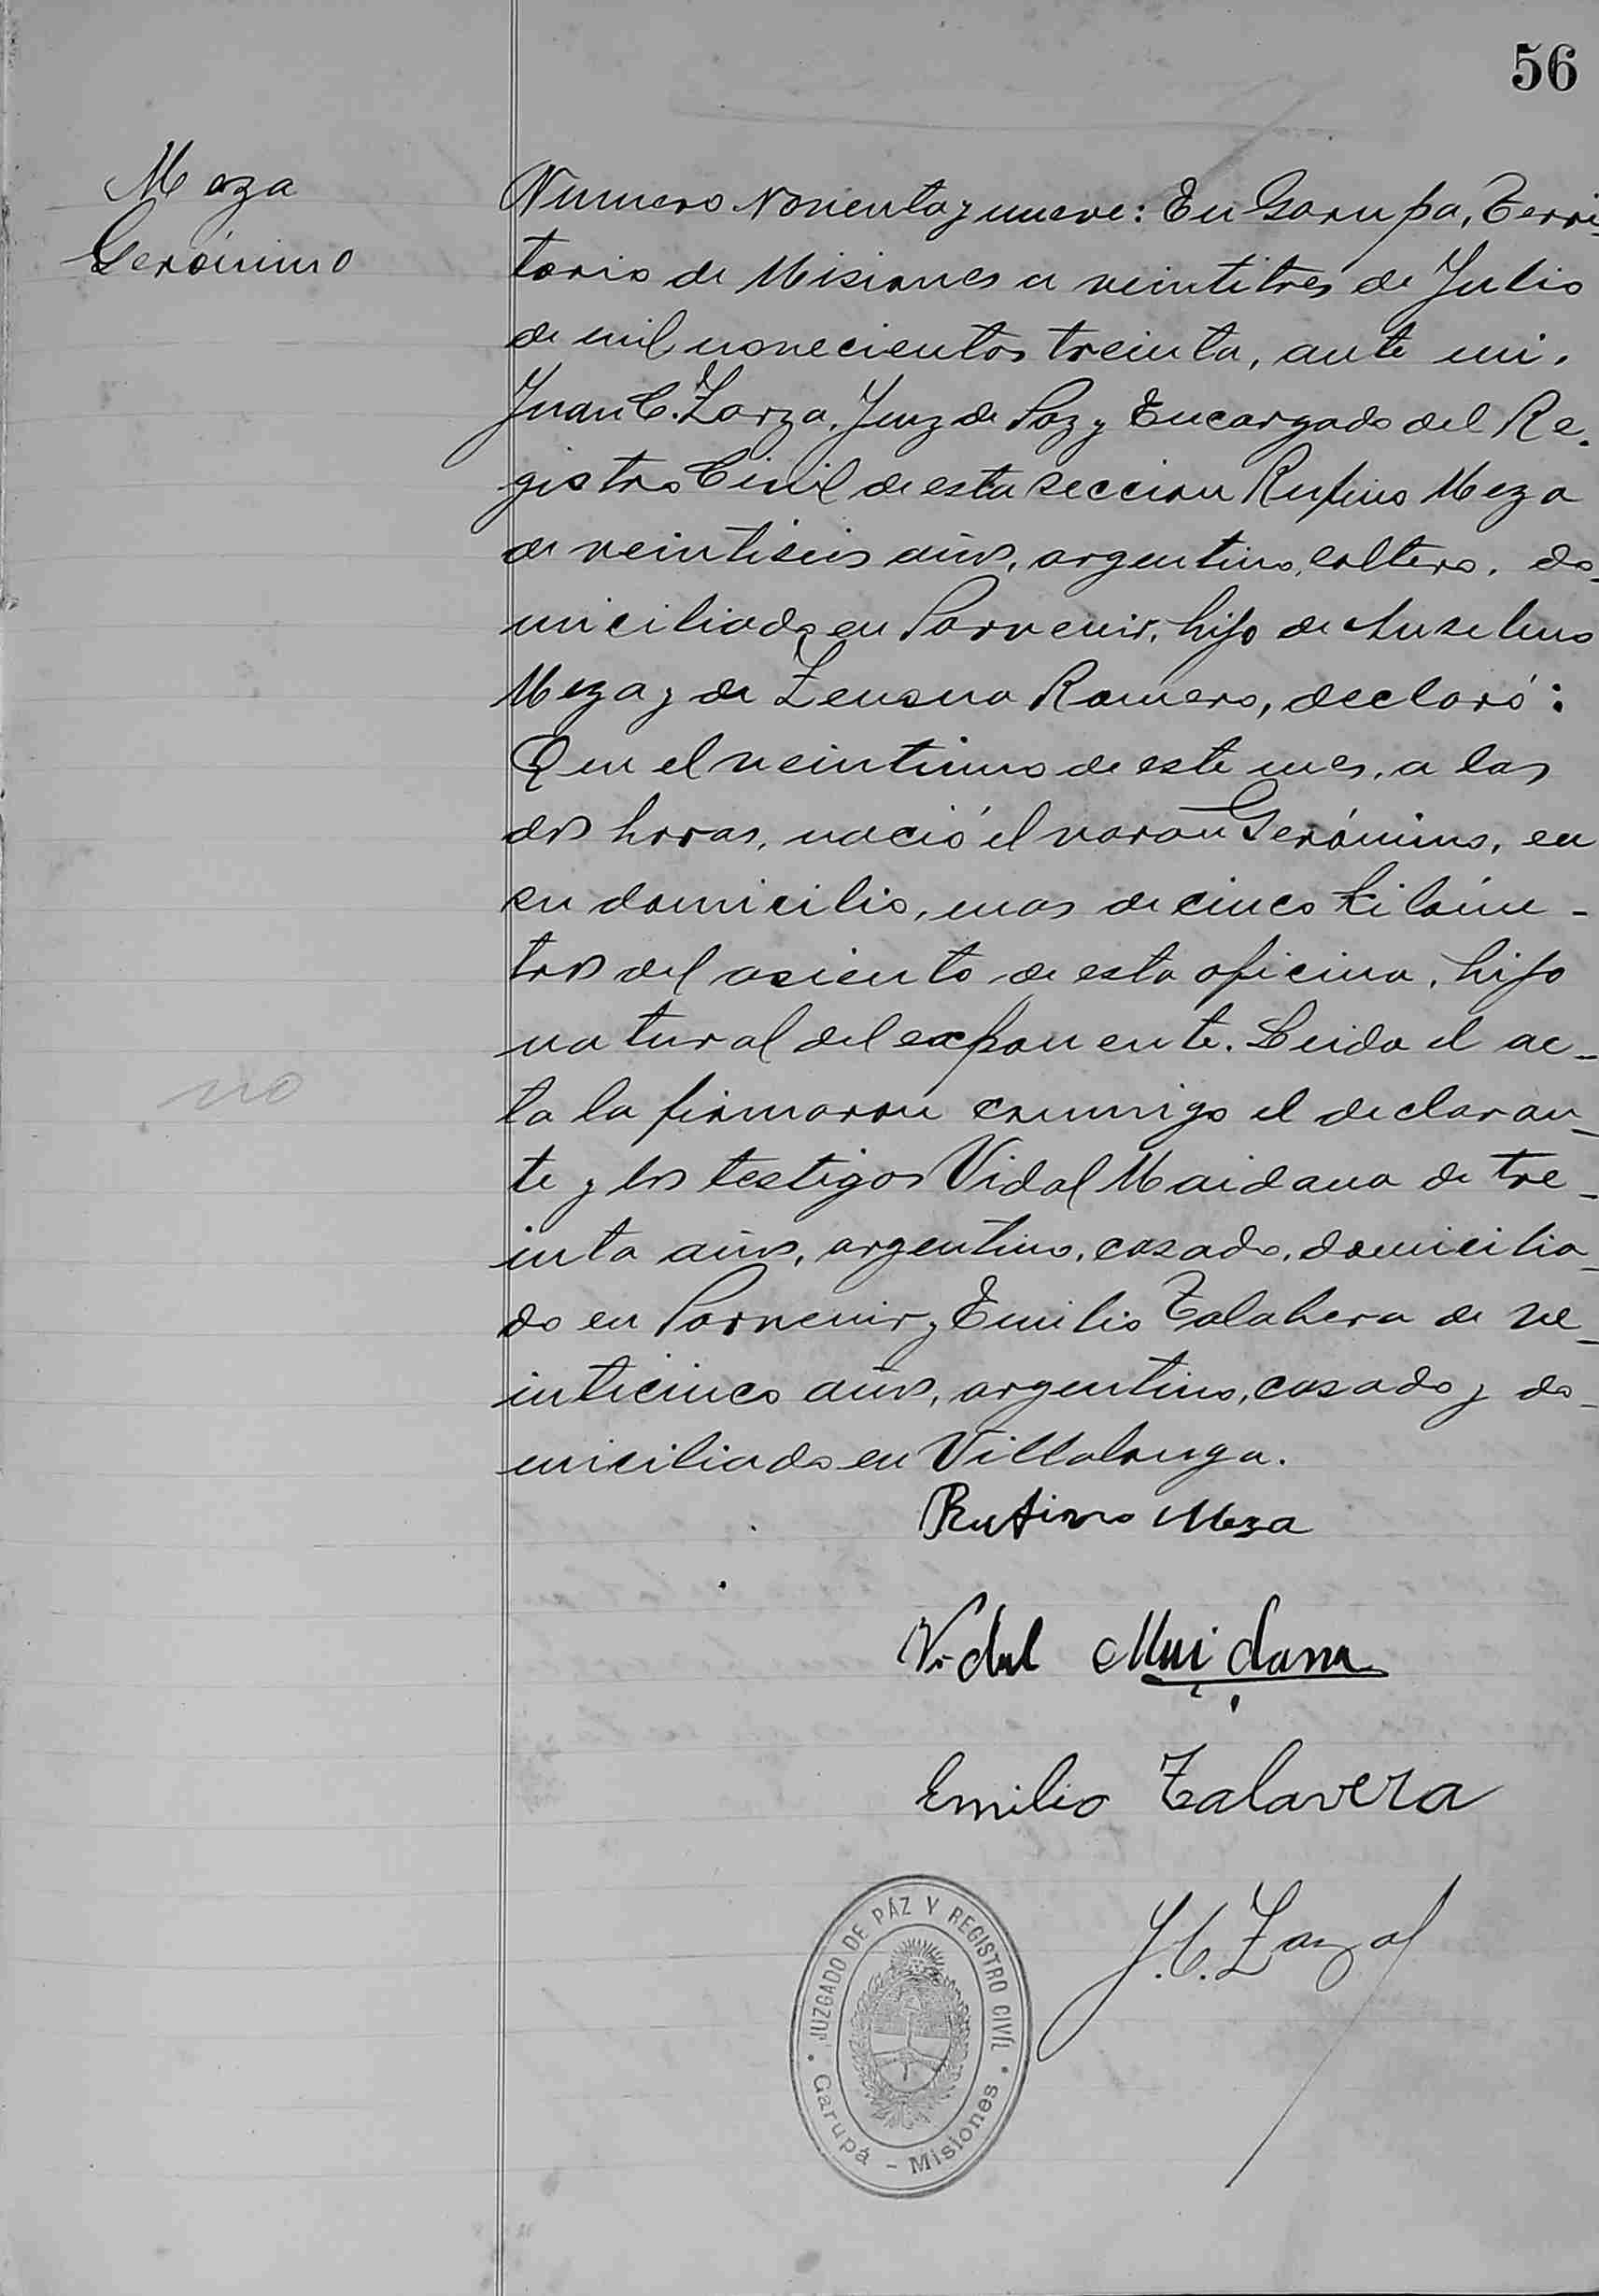 56
Meza
Gerónimo
Numero Noventa y nueve: En Garupa, Terri-
torio de Misiones a veintitres de Julio
de mil novecientos treinta, ante mi.
Juan C. Zarza, Juez de Paz y Encargado del Re-
gistro Civil de esta seccion Rufino Meza
de veintiseis años, argentino, soltero, do-
miciliado en Porvenir, hijo de Anselmo
Meza y de Romero, declaró:
Que el veintiuno de este mes, a las
dos horas, nació el varon Gerónimo, en
su domicilio, mas de cinco kilóme-
tros del asiento de esta oficina, hijo
natural del exponente. Leida el ac-
ta la firmaron conmigo el declaran-
te y los testigos Vidal Maidana de tre-
inta años, argentino, casado, domicilia-
do en Porvenir y Emilio Talabera de ve-
inticinco años, argentino, casado y do-
miciliado en Villalonga.
no
Rufino Meza
Vidal Maidana
Emilio Talavera
J. C. Zarza
JUZGADO DE PÁZ Y REGISTRO CIVIL
Garupá - Misiones